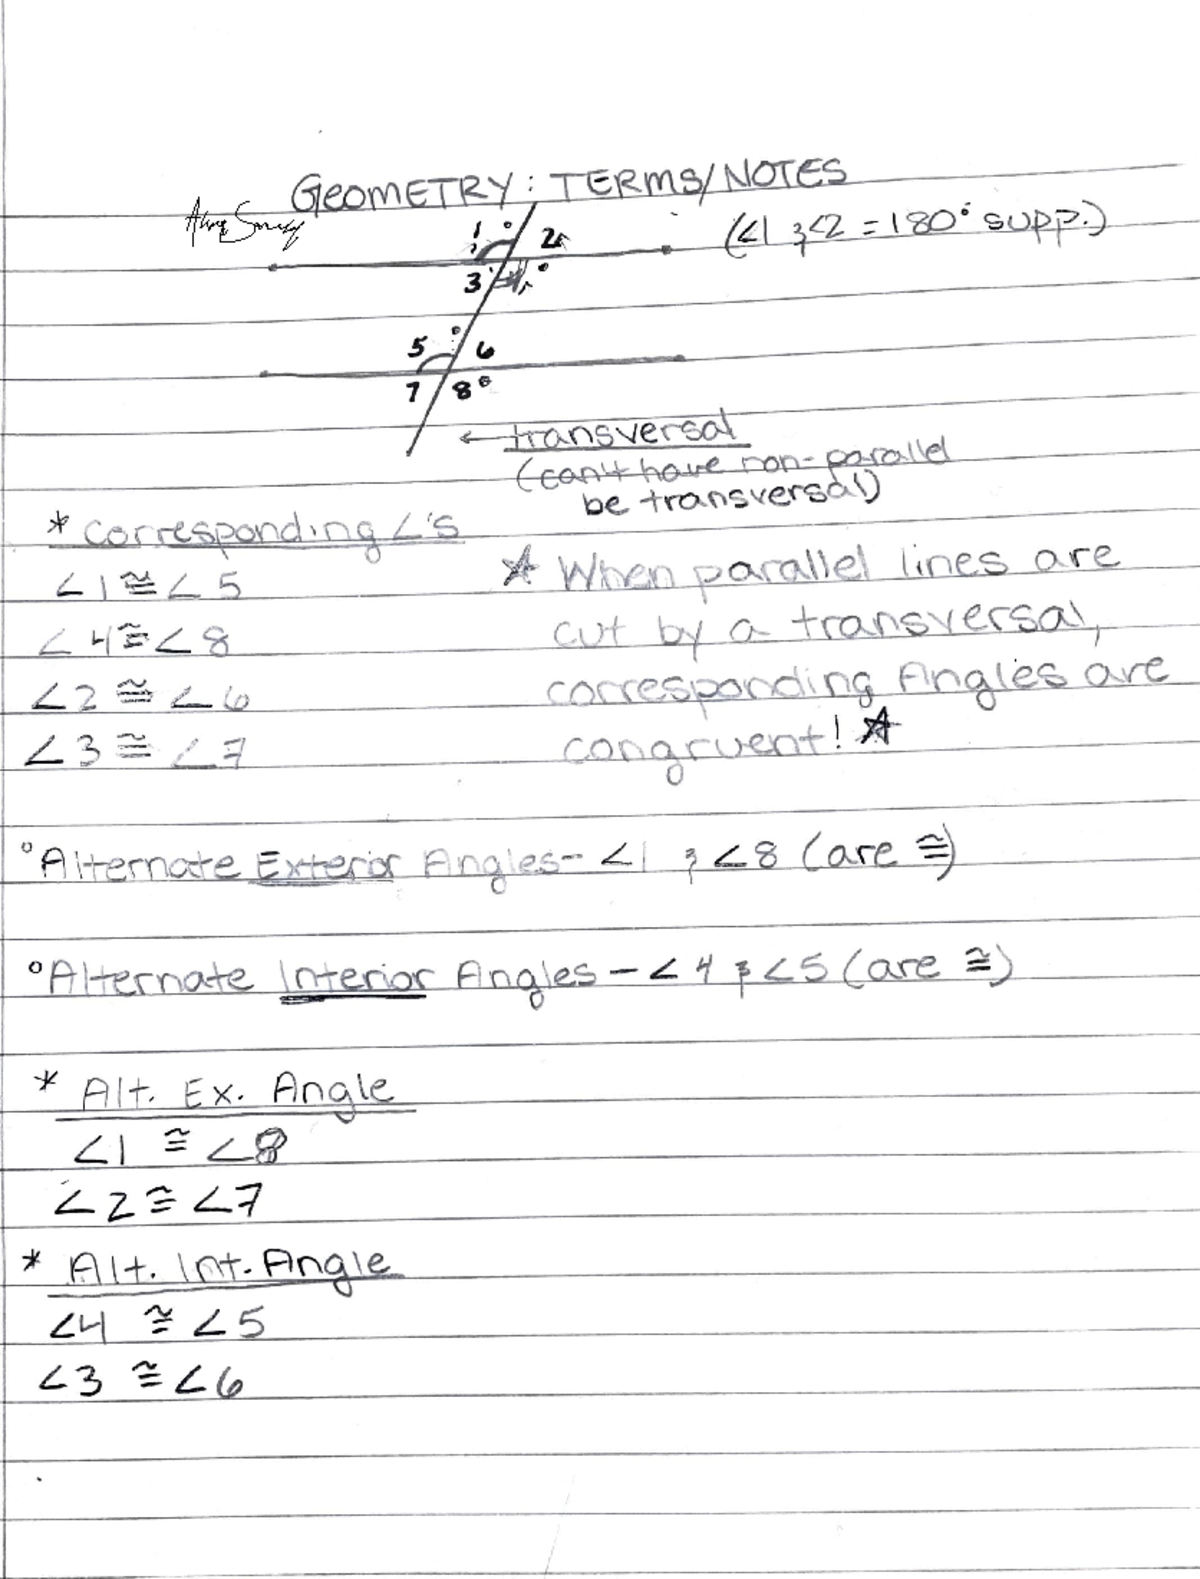 GEOMETRY: TERMS/NOTES
(∠1 & ∠2 = 180° supp.)
1 2
3
5 6
7 8
← transversal
(can't have non-parallel
be transversal)
* Corresponding ∠'s
∠1 ≅ ∠5
∠4 ≅ ∠8
∠2 ≅ ∠6
∠3 ≅ ∠7
☆ When parallel lines are
cut by a transversal,
corresponding Angles are
congruent! ☆
° Alternate Exterior Angles - ∠1 & ∠8 (are ≅)
° Alternate Interior Angles - ∠4 & ∠5 (are ≅)
* Alt. Ex. Angle
∠1 ≅ ∠8
∠2 ≅ ∠7
* Alt. Int. Angle
∠4 ≅ ∠5
∠3 ≅ ∠6